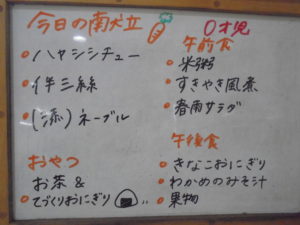 今日の献立
ハヤシシチュー
伴三絲
(添)ネーブル
おやつ
お茶 &
てづくりおにぎり
0才児
午前食
米粥
すきやき風煮
春雨サラダ
午後食
きなこおにぎり
わかめのみそ汁
果物